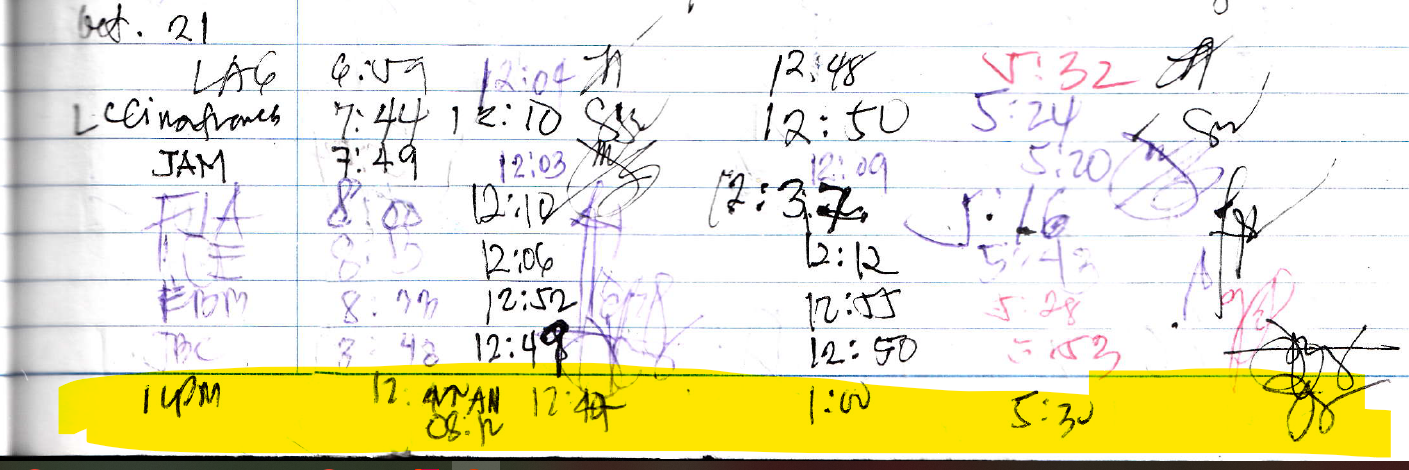 Oct. 21
LAG 6:59 12:04 12:48 5:32
7:44 12:10 12:50 5:24
JAM 7:49 12:03 12:09 5:20
FJA 8:00 12:10 12:37 5:16
12:06 12:12 5:43
EBM 8:33 12:52 12:55 5:28
JBC 12:49 12:50 5:53
12: 12:47 1:00 5:30
08:12